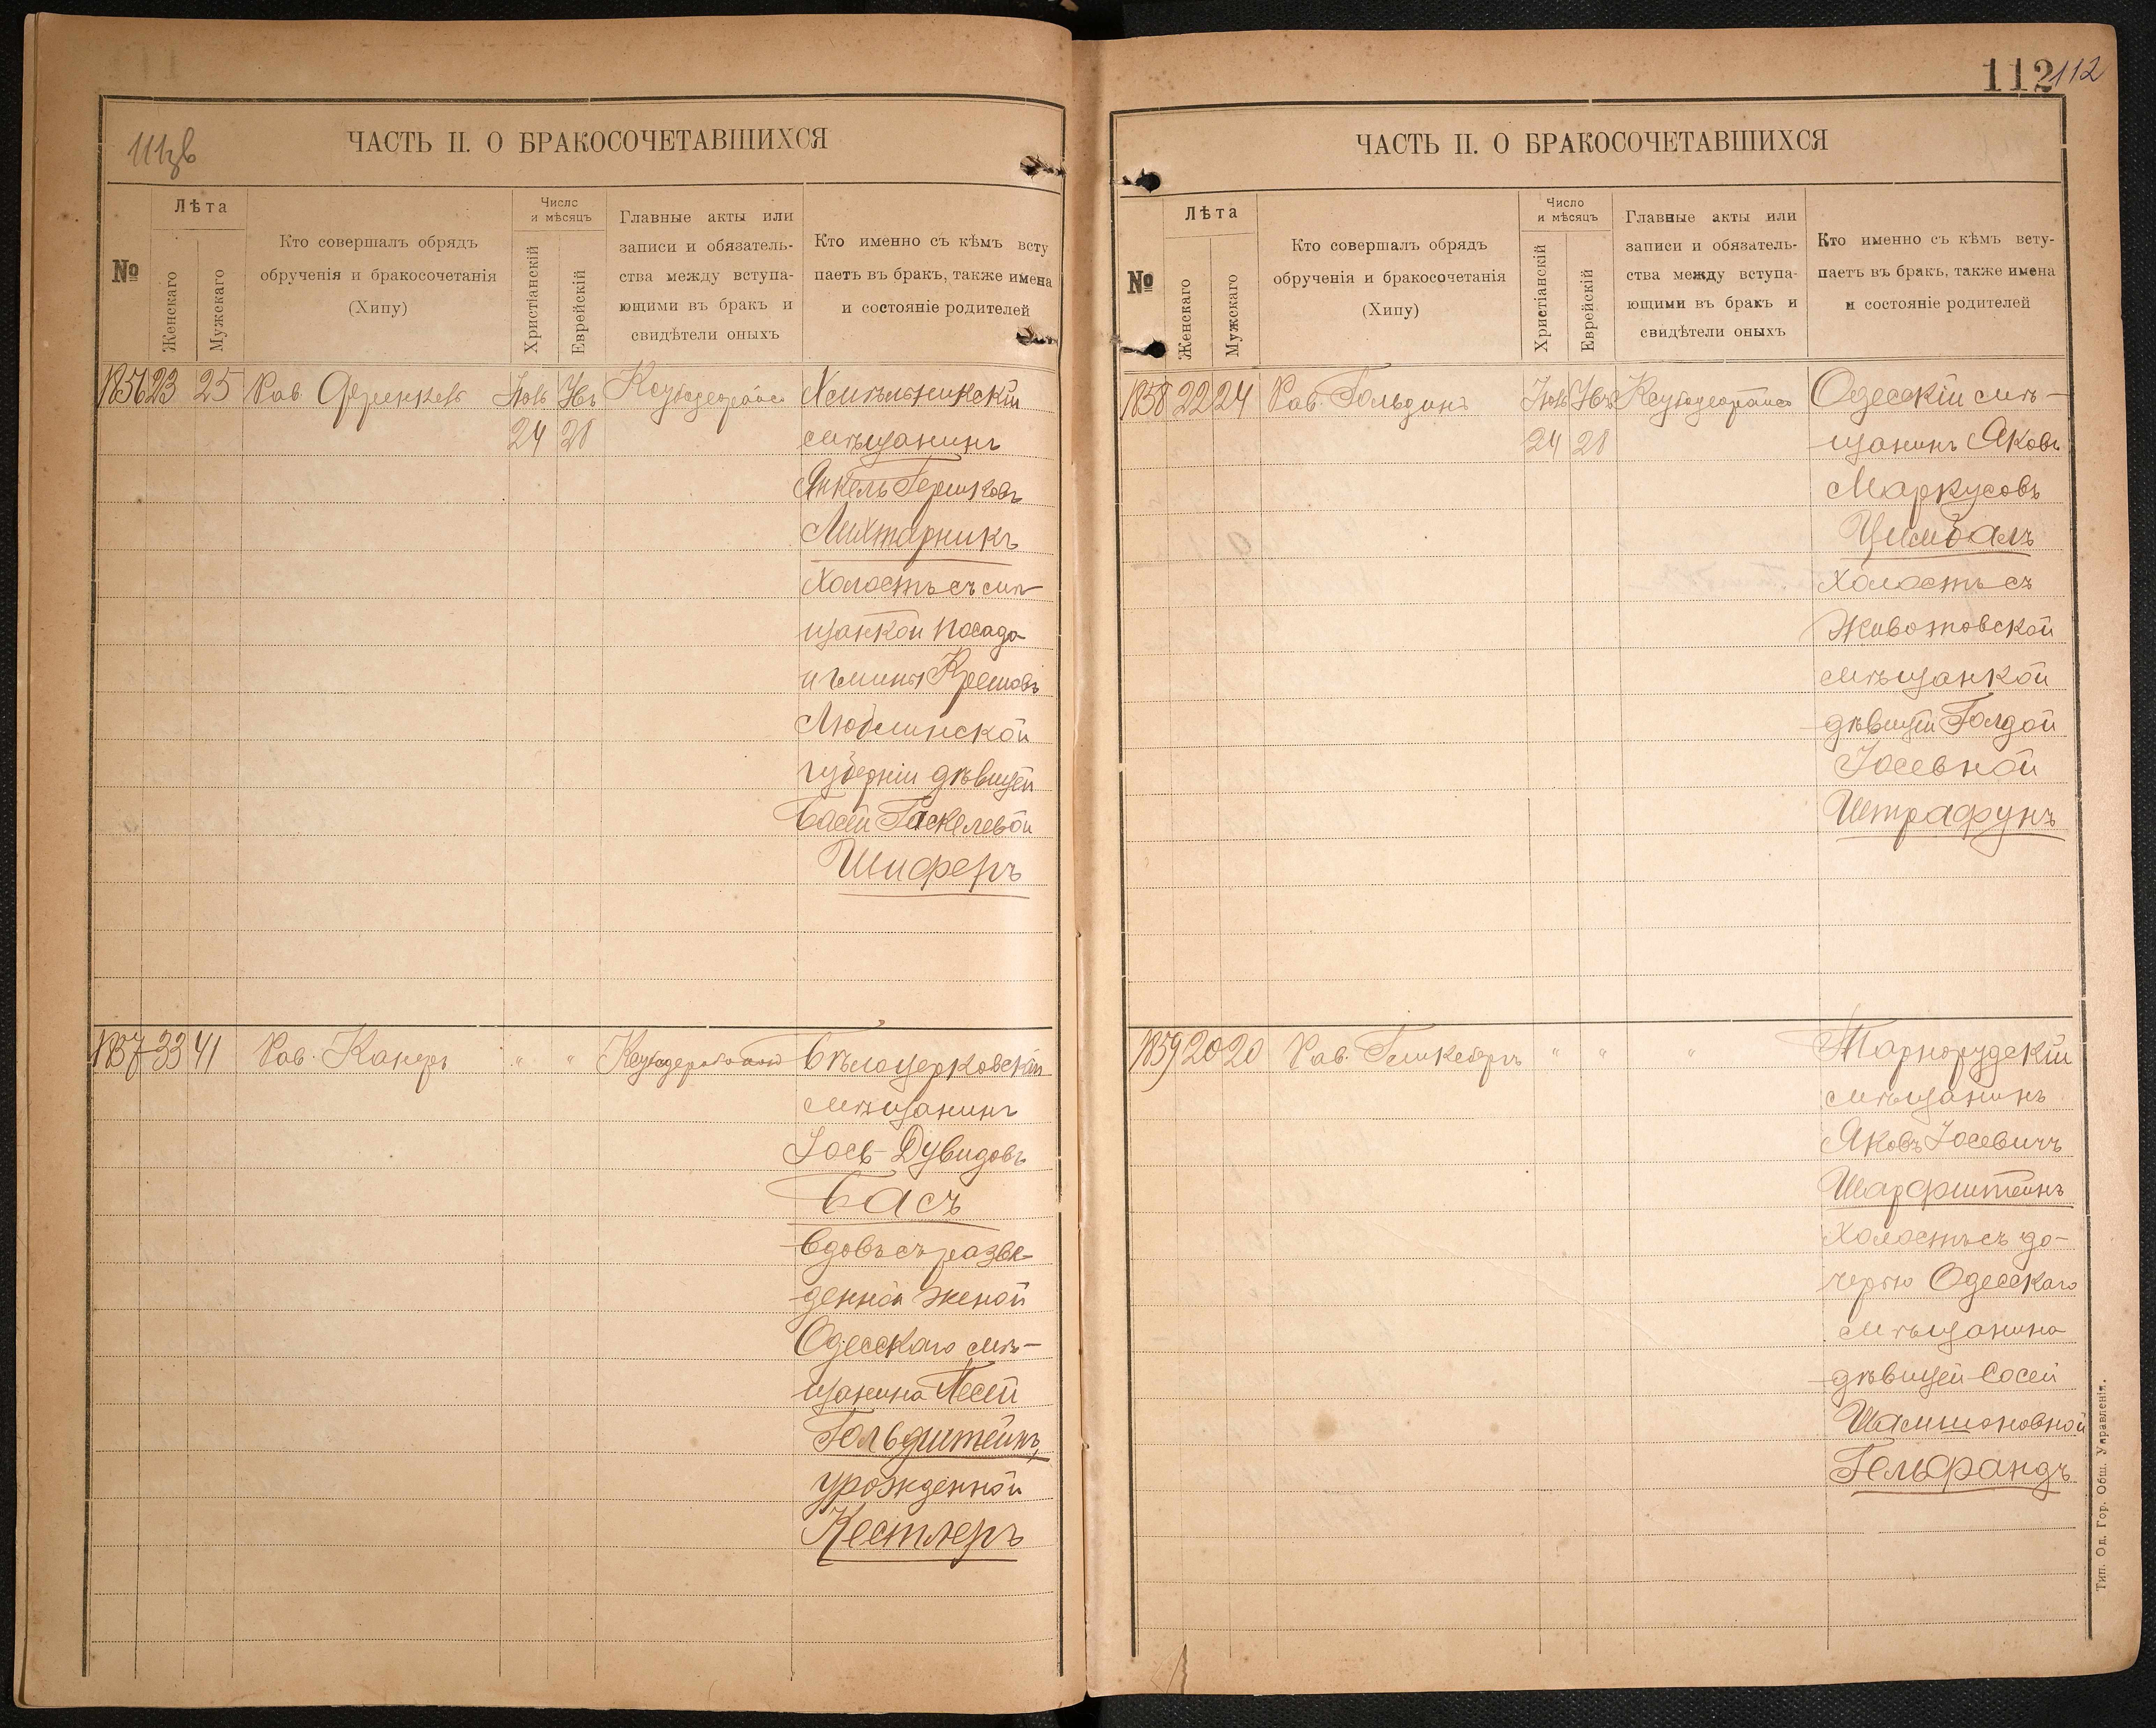 111зв
ЧАСТЬ II. О БРАКОСОЧЕТАВШИХСЯ
№
Лѣта
Женскаго
Мужскаго
Кто совершалъ обрядъ
обрученія и бракосочетанія
(Хипу)
Число
и мѣсяцъ
Христіанскій
Еврейскій
Главные акты или
записи и обязатель-
ства между вступа-
ющими въ бракъ и
свидѣтели оныхъ
Кто именно съ кѣмъ всту
паетъ въ бракъ, также имена
и состояніе родителей
1856 23 25 Рав.
24 28
Хмѣльникскій
мѣщанинъ
Янкель Гершковъ
Лихтарникъ
холостъ съ мѣ-
щанкой посада
и гмины Крешовъ
Люблинской
губерніи дѣвицей
Басей Гаскелевой
Шиферъ
1857 33 41 Рав. Канеръ " "
Бѣлоцерковскій
мѣщанинъ
Іось-Дувидовъ
Басъ
вдовъ съ разве-
денной женой
Одесскаго мѣ-
щанина Песей
Гольдштейнъ,
урожденной
Кестлеръ
112 112
ЧАСТЬ II. О БРАКОСОЧЕТАВШИХСЯ
№
Лѣта
Женскаго
Мужскаго
Кто совершалъ обрядъ
обрученія и бракосочетанія
(Хипу)
Число
и мѣсяцъ
Христіанскій
Еврейскій
Главные акты или
записи и обязатель-
ства между вступа-
ющими въ бракъ и
свидѣтели оныхъ
Кто именно съ кѣмъ всту-
паетъ въ бракъ, также имена
и состояніе родителей
1858 22 24 Рав. Гольдинъ
24 28
Одесскій мѣ-
щанинъ Яковъ
Маркусовъ
Цимбалъ
холостъ съ
Животовской
мѣщанкой
дѣвицей Голдой
Іосевной
Штрафунъ
1859 20 20 Рав. " " "
Тарнорудскій
мѣщанинъ
Яковъ Іосевичъ
Шарфштейнъ
холостъ съ до-
черью Одесскаго
мѣщанина
дѣвицей Сосей
Шамшоновной
Гельфандъ
Тип. Од. Гор. Общ. Управленія.